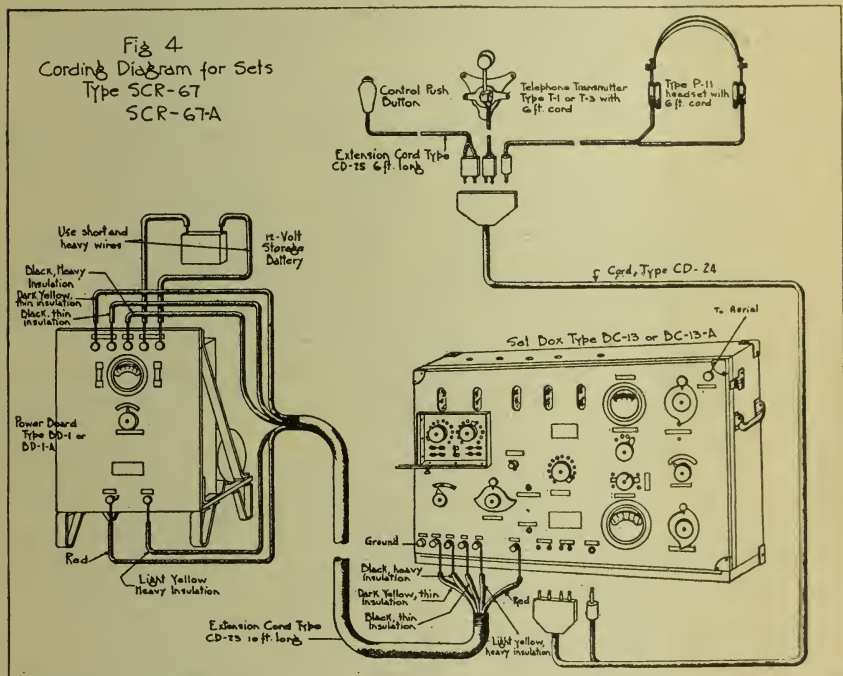 Fig 4
Cording Diagram for Sets
Type SCR-67
SCR-67-A
Control Push
Button
Telephone Transmitter
Type T-1 or T-3 with
6 ft. cord
Type P-11
headset with
6 ft. cord
Extension Cord Type
CD-25 6 ft. long
Use short and
heavy wires
12-Volt
Storage
Battery
Black, Heavy
Insulation
Dark Yellow,
thin insulation
Black, thin
insulation
Cord, Type CD-24
To Aerial
Set Box Type BC-13 or BC-13-A
Power Board
Type BD-1 or
BD-1-A
Ground
Red
Light Yellow
Heavy Insulation
Black, heavy
insulation
Dark Yellow, thin
Insulation
Black, thin
insulation
Red
Light yellow,
heavy insulation
Extension Cord Type
CD-23 10 ft. long